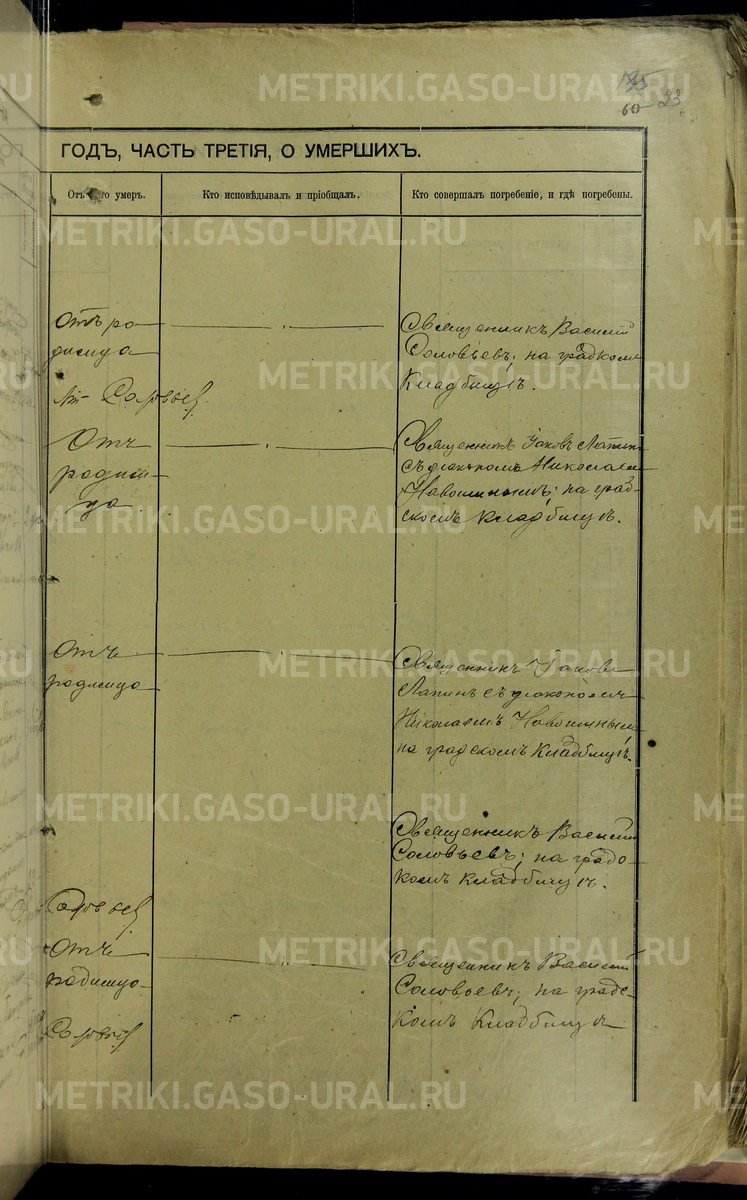 23
60
ГОДЪ, ЧАСТЬ ТРЕТІЯ, О УМЕРШИХЪ.
Отъ умеръ.
Кто исповѣдывалъ и пріобщалъ.
Кто совершалъ погребеніе, и гдѣ погребены.
Отъ ро-
димца
Соловьев
Священникъ Василій
Соловьевъ; на градскомъ
кладбищѣ.
Отъ
родим-
ца
Священникъ Іаковъ Лапинъ
съ діакономъ Николаемъ
на град-
скомъ кладбищѣ.
Отъ
родимца
Священникъ Іаковъ
Лапинъ съ діакономъ
Николаемъ
на градскомъ кладбищѣ.
Священникъ Василій
Соловьевъ; на градс-
комъ кладбищѣ.
Соловьев
Отъ
родимца
Соловьев
Священникъ Василій
Соловьевъ; на градс-
комъ кладбищѣ
METRIKI.GASO-URAL.RU